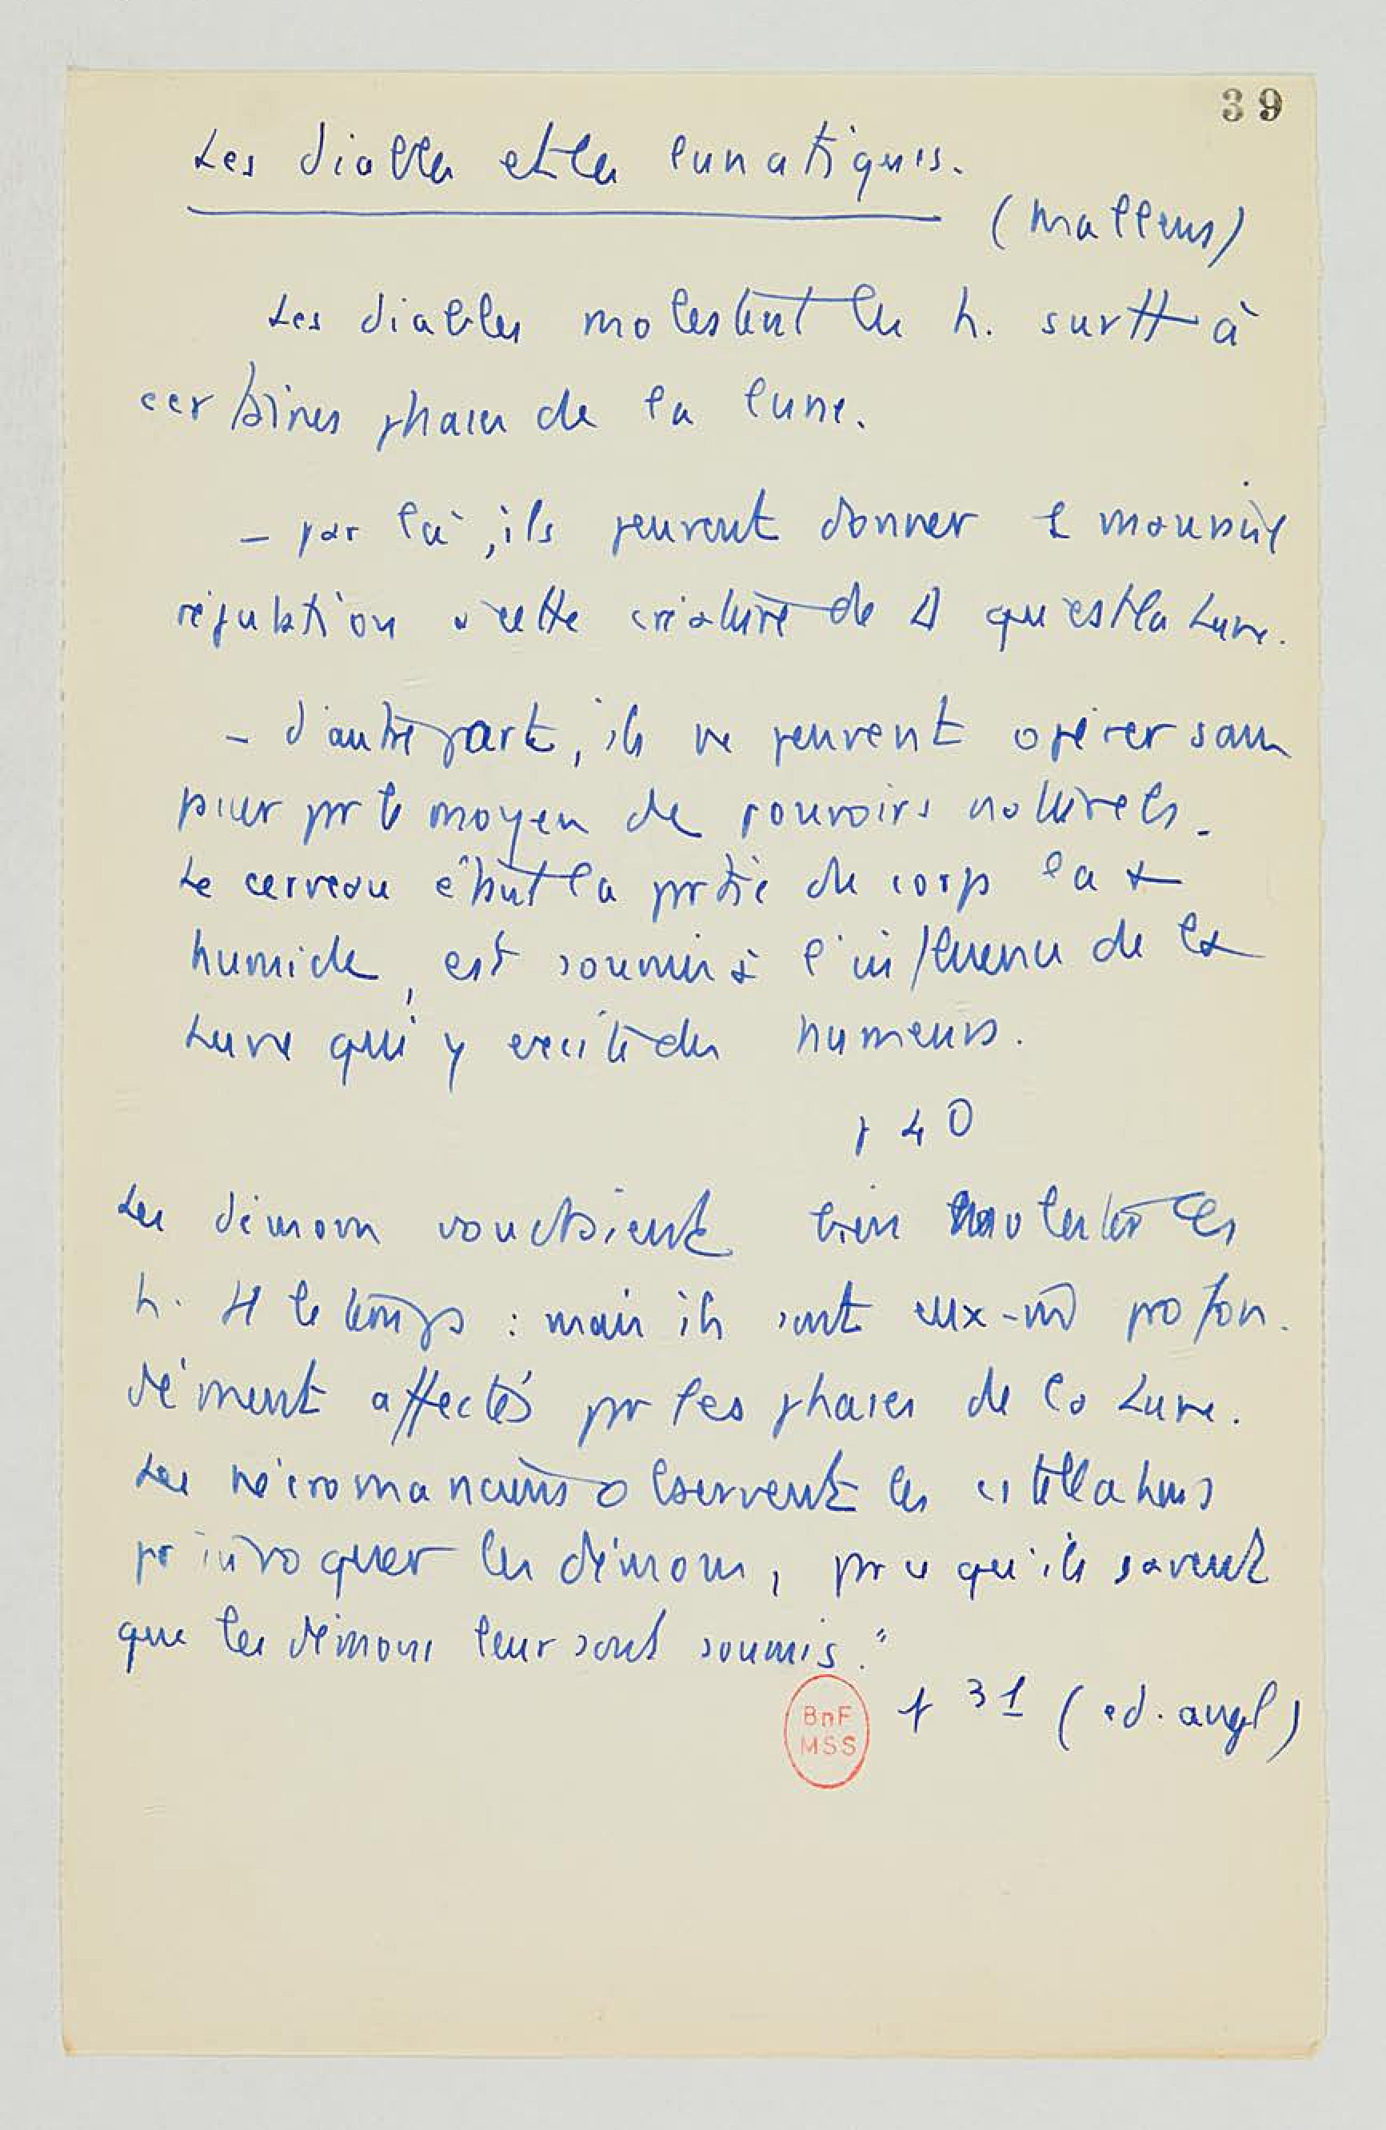 39
Les diables et les lunatiques.
(Malleus)
Les diables molestent les h. surtt à
certaines phases de la lune.
- par là, ils peuvent donner 1 mauvaise
réputation à cette créature de D qu'est la Lune.
- d'autre part, ils ne peuvent opérer sans
passer pr le moyen de pouvoirs naturels.
Le cerveau étant la partie du corps la +
humide, est soumis à l'influence de la
Lune qui y excite des humeurs.
p 40
Les démons voudraient bien molester les
h. tt le temps : mais ils sont eux-m̂ profon-
dément affectés par les phases de la Lune.
Les nécromanciens observent les cstellations
pr invoquer les démons, pr ce qu'ils savent
que les démons leur sont soumis."
p 31 (ed. angl)
BnF
MSS